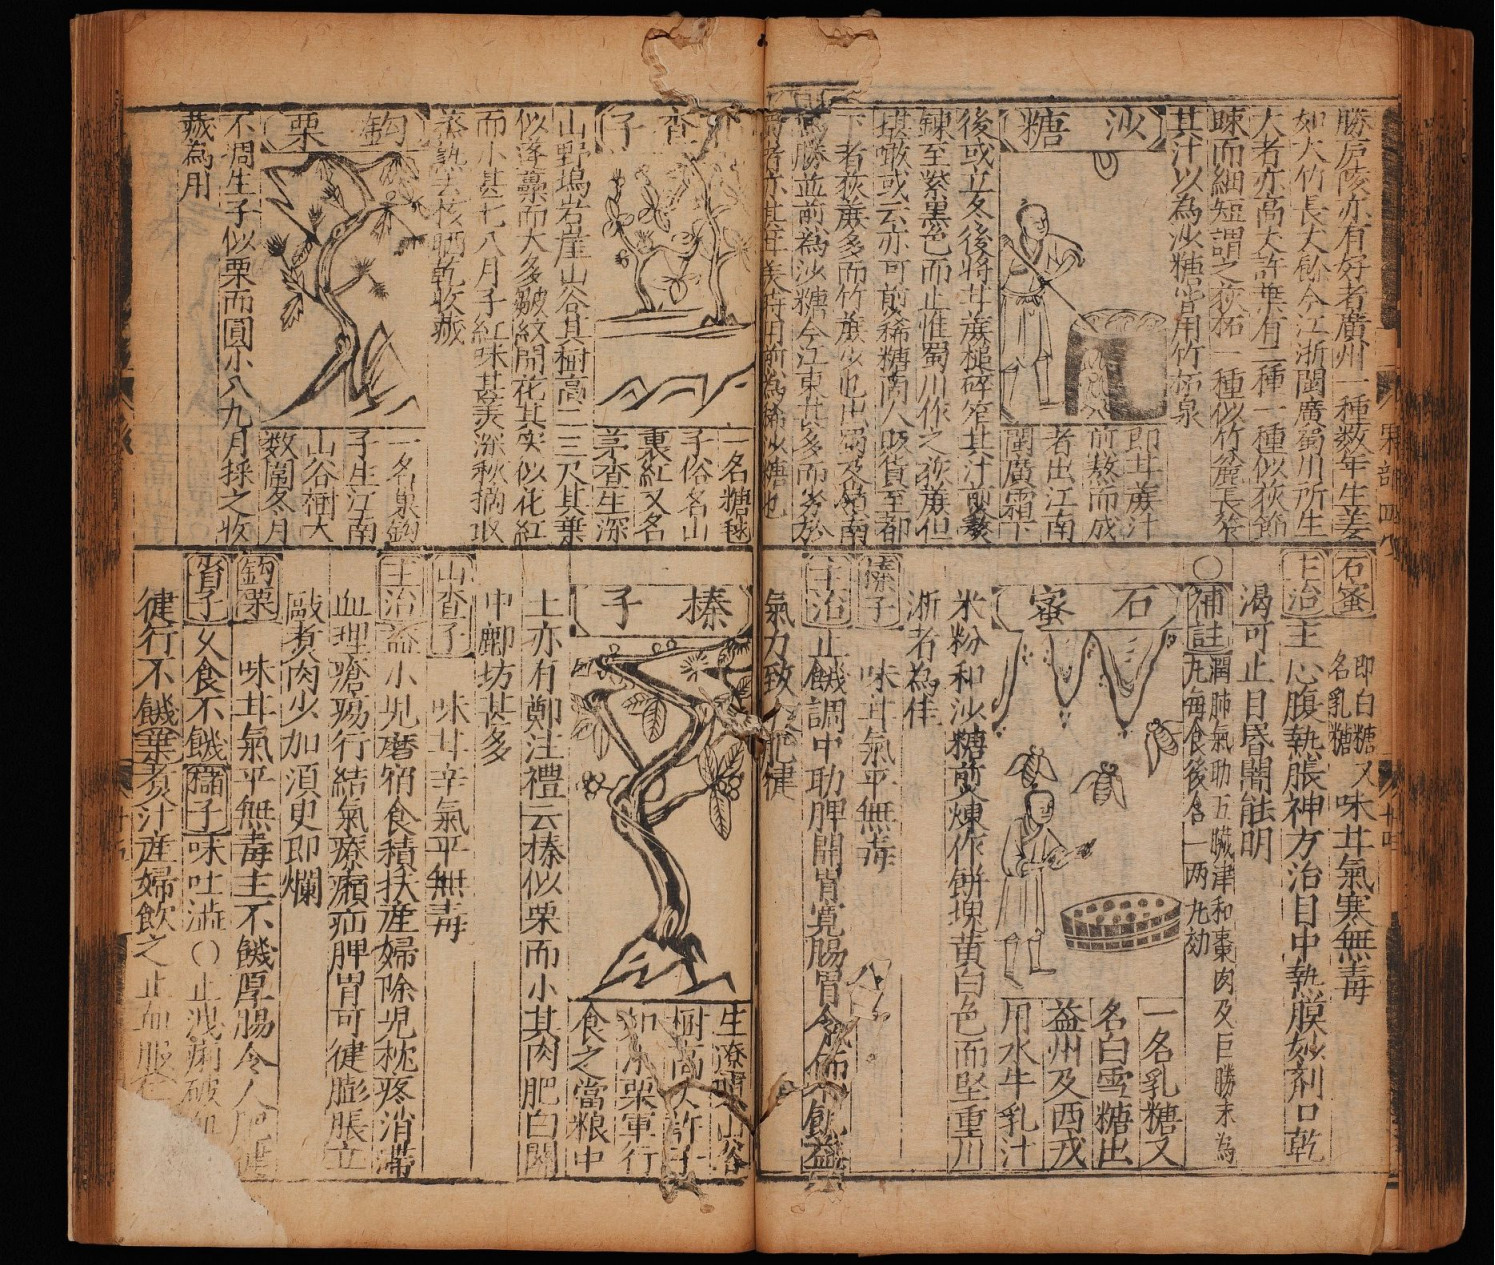 勝庐陔亦有好者廣州一種数年生美
如大竹長大餘今江浙閩廣蜀川所生
大者亦高大許葉有二種一種似荻節
踈而細短謂之荻柘一種似竹麄長笮
其汁以為沙糖皆用竹柘泉
沙糖
即甘蔗汁
煎熬而成
者出江南
閩廣霜下
後或立冬後將甘蔗槌碎笮其汁煎熬
錬至紫黒色而止惟蜀川作之荻蔗但
堪噉或云亦可煎稀糖商人販貨至都
下者荻蔗多而竹蔗少也出蜀及嶺南
為勝並煎為沙糖今江東甚多而劣於
山查子
一名糖毬
子俗名山
裏紅又名
茅查生深
山野塢岩崖山谷其樹高二三尺其葉
似蓬蘽而大多皺紋開花其实似花紅
而小甚七八月子紅味甚美深秋摘取
蒸熟去核晒乾收藏
鈎栗
一名巢鈎
子生江南
山谷樹大
数圍冬月
不凋生子似栗而圓小八九月採之收
藏為用
石蜜
即白糖又
名乳糖
味甘氣寒無毒
主治主心腹熱脹神方治目中熱膜妙剤口乾
渴可止目昏闇能明
○補註潤肺氣助五臟津和棗肉及巨勝末為
九每食後含一两九効
石蜜
一名乳糖又
名白雪糖出
益州及西戎
用水牛乳汁
米粉和沙糖煎煉作餅塊黄白色而坚重川
浙者為佳
榛子
味甘氣平無毒
主治止饑調中助脾開胃寛腸胃令能不飢益
氣力致人肥健
榛子
生遼東山谷
樹高大許子
如小栗軍行
食之當粮中
土亦有鄭注禮云榛似栗而小其肉肥白関
中鄜坊甚多
山查子
味甘辛氣平無毒
主治益小児磨宿食積扶産婦除児枕疼消滞
血理瘡瘍行結氣療㿗疝脾胃可健膨脹立
敲煮肉少加須更即爛
鈎栗
味甘氣平無毒主不饑厚腸令人肥健
又食不饑櫧子味吐澁○止洩痢破血
健行不饑葉煮汁産婦飲之止血
果部